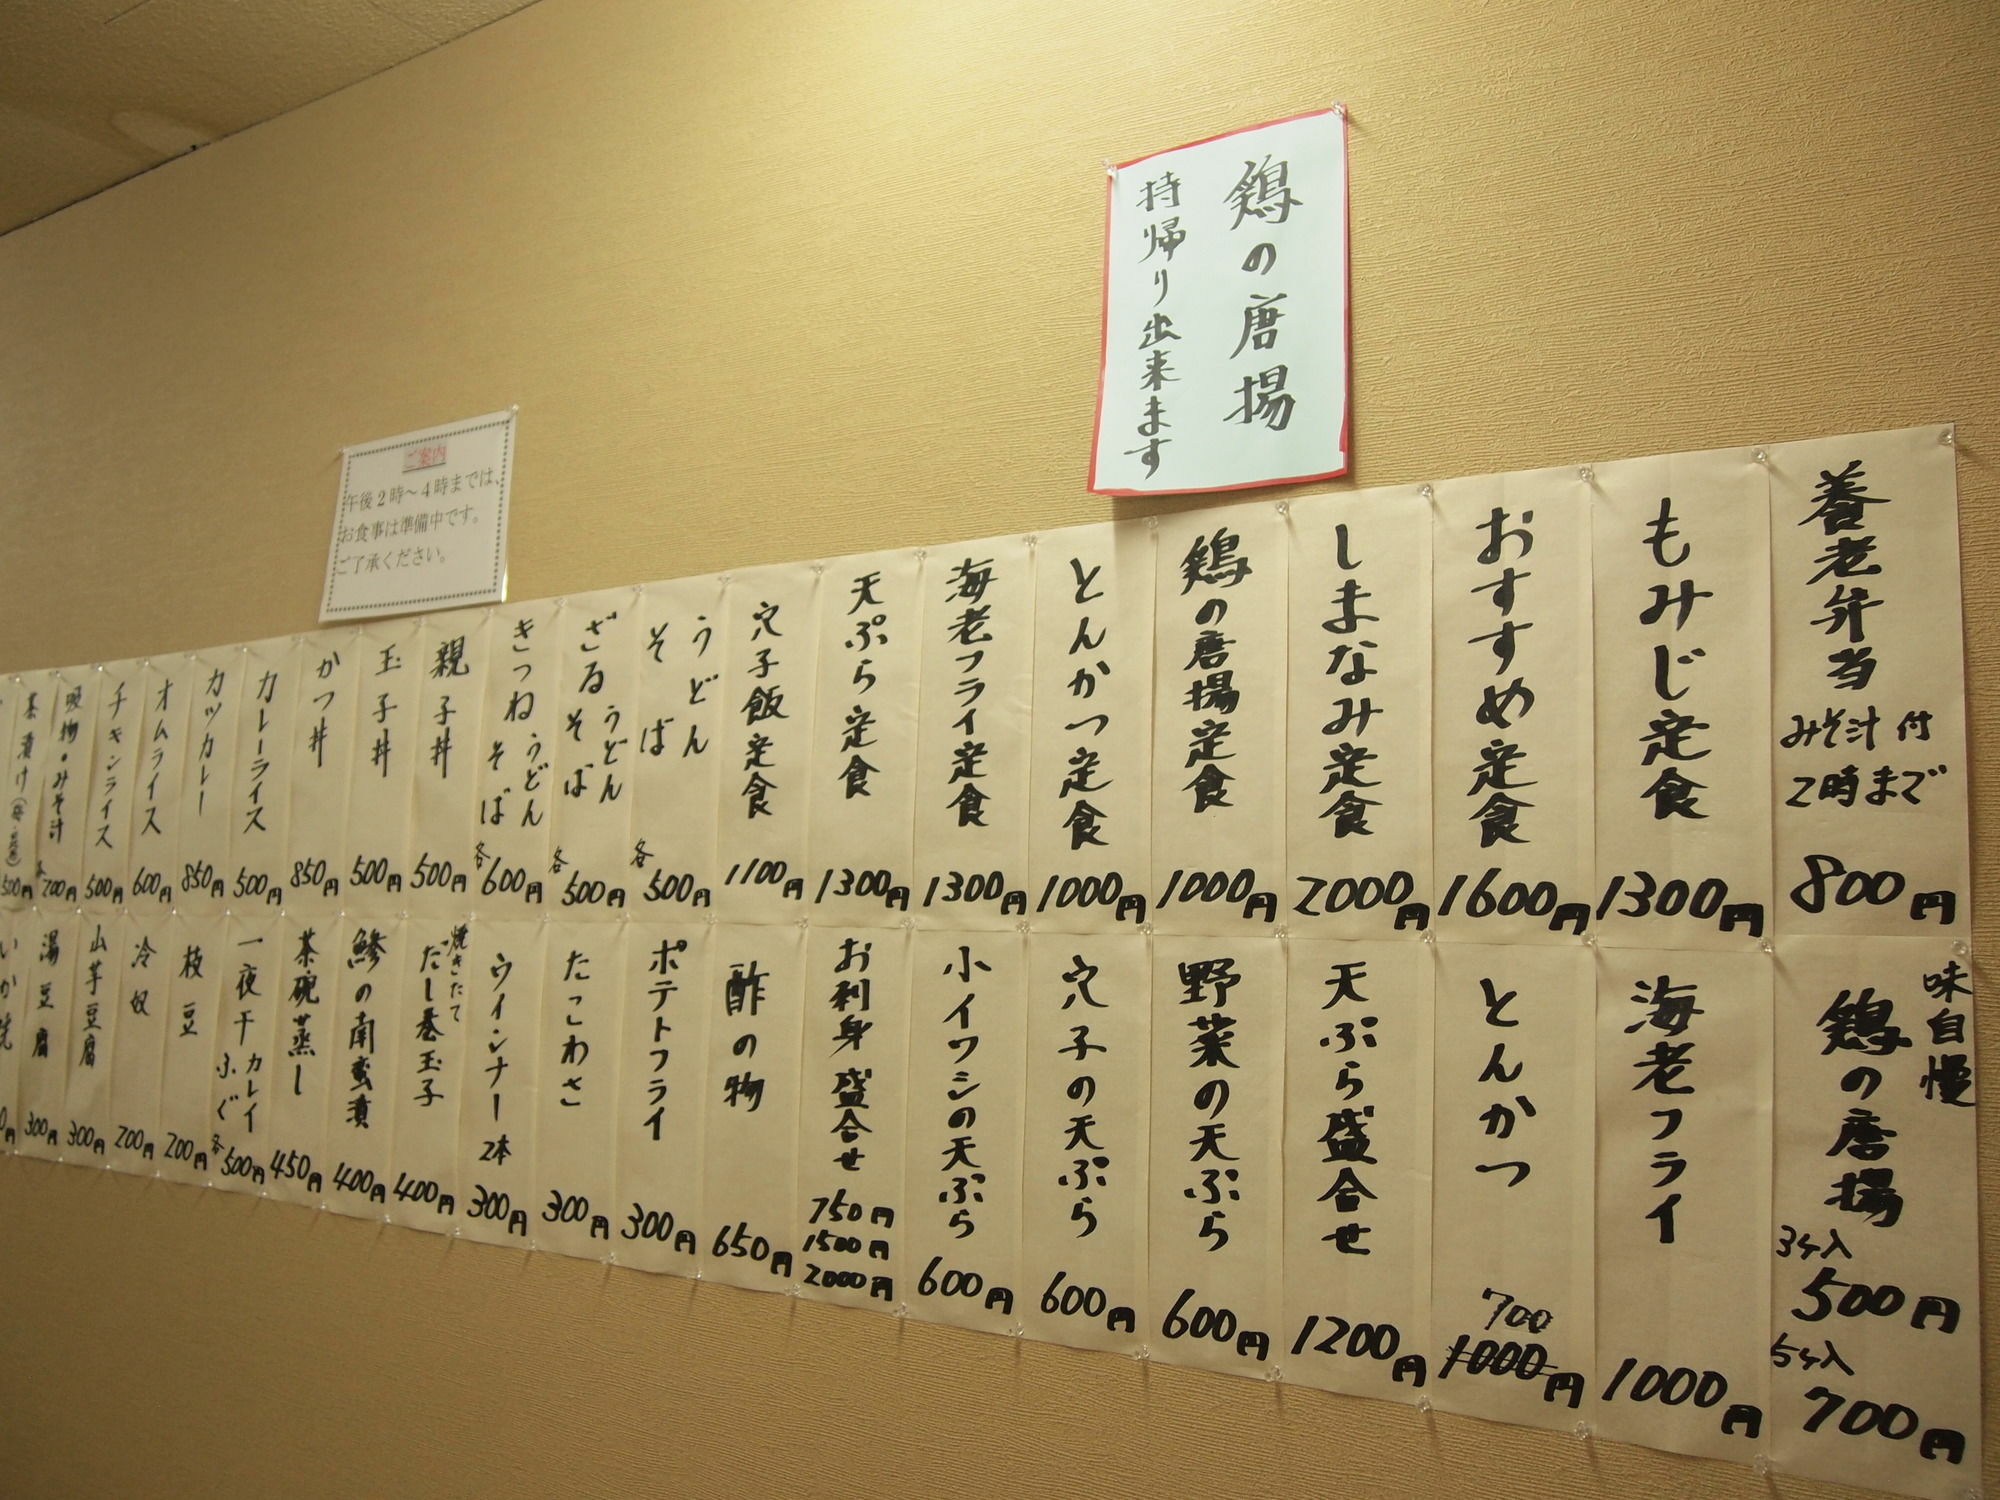 鶏の唐揚
持帰り出来ます
ご案内
午後2時～4時までは、
お食事は準備中です。
ご了承ください。
養老弁当
みそ汁付
2時まで
800円
もみじ定食
1300円
おすすめ定食
1600円
しまなみ定食
2000円
鶏の唐揚定食
1000円
とんかつ定食
1000円
海老フライ定食
1300円
天ぷら定食
1300円
穴子飯定食
1100円
うどん
そば
各500円
ざるうどん
そば
各500円
きつねうどん
そば
各600円
親子丼
500円
玉子丼
500円
かつ丼
850円
カレーライス
500円
カツカレー
850円
オムライス
600円
チキンライス
500円
吸物・みそ汁
200円
茶漬け
500円
味自慢
鶏の唐揚
3ケ入
500円
5ケ入
700円
海老フライ
1000円
とんかつ
700
1000円
天ぷら盛合せ
1200円
野菜の天ぷら
600円
穴子の天ぷら
600円
小イワシの天ぷら
600円
お利身盛合せ
750円
1500円
2000円
酢の物
650円
ポテトフライ
300円
たこわさ
300円
ウインナー2本
300円
焼きたて
だし巻玉子
400円
鯵の南蛮漬
400円
茶碗蒸し
450円
一夜干カレイ
ふぐ
各500円
枝豆
200円
冷奴
200円
山芋豆腐
300円
湯豆腐
300円
いか焼